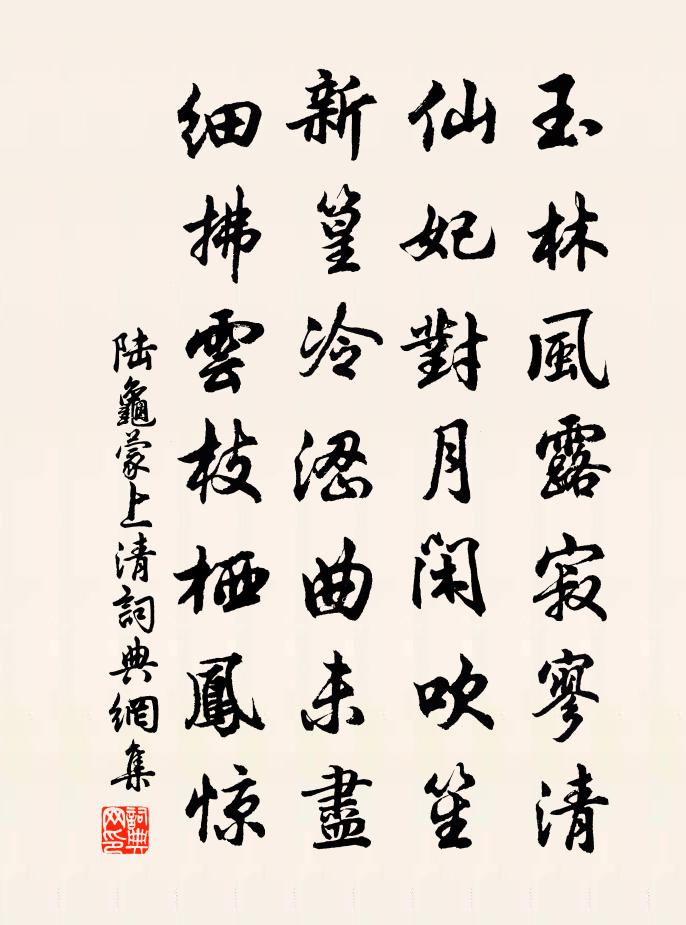 玉林風露寂寥清
仙妃對月閑吹笙
新篁冷澀曲未盡
細拂雲枝栖鳳惊
陸龜蒙上清詞典網集
詞典网印